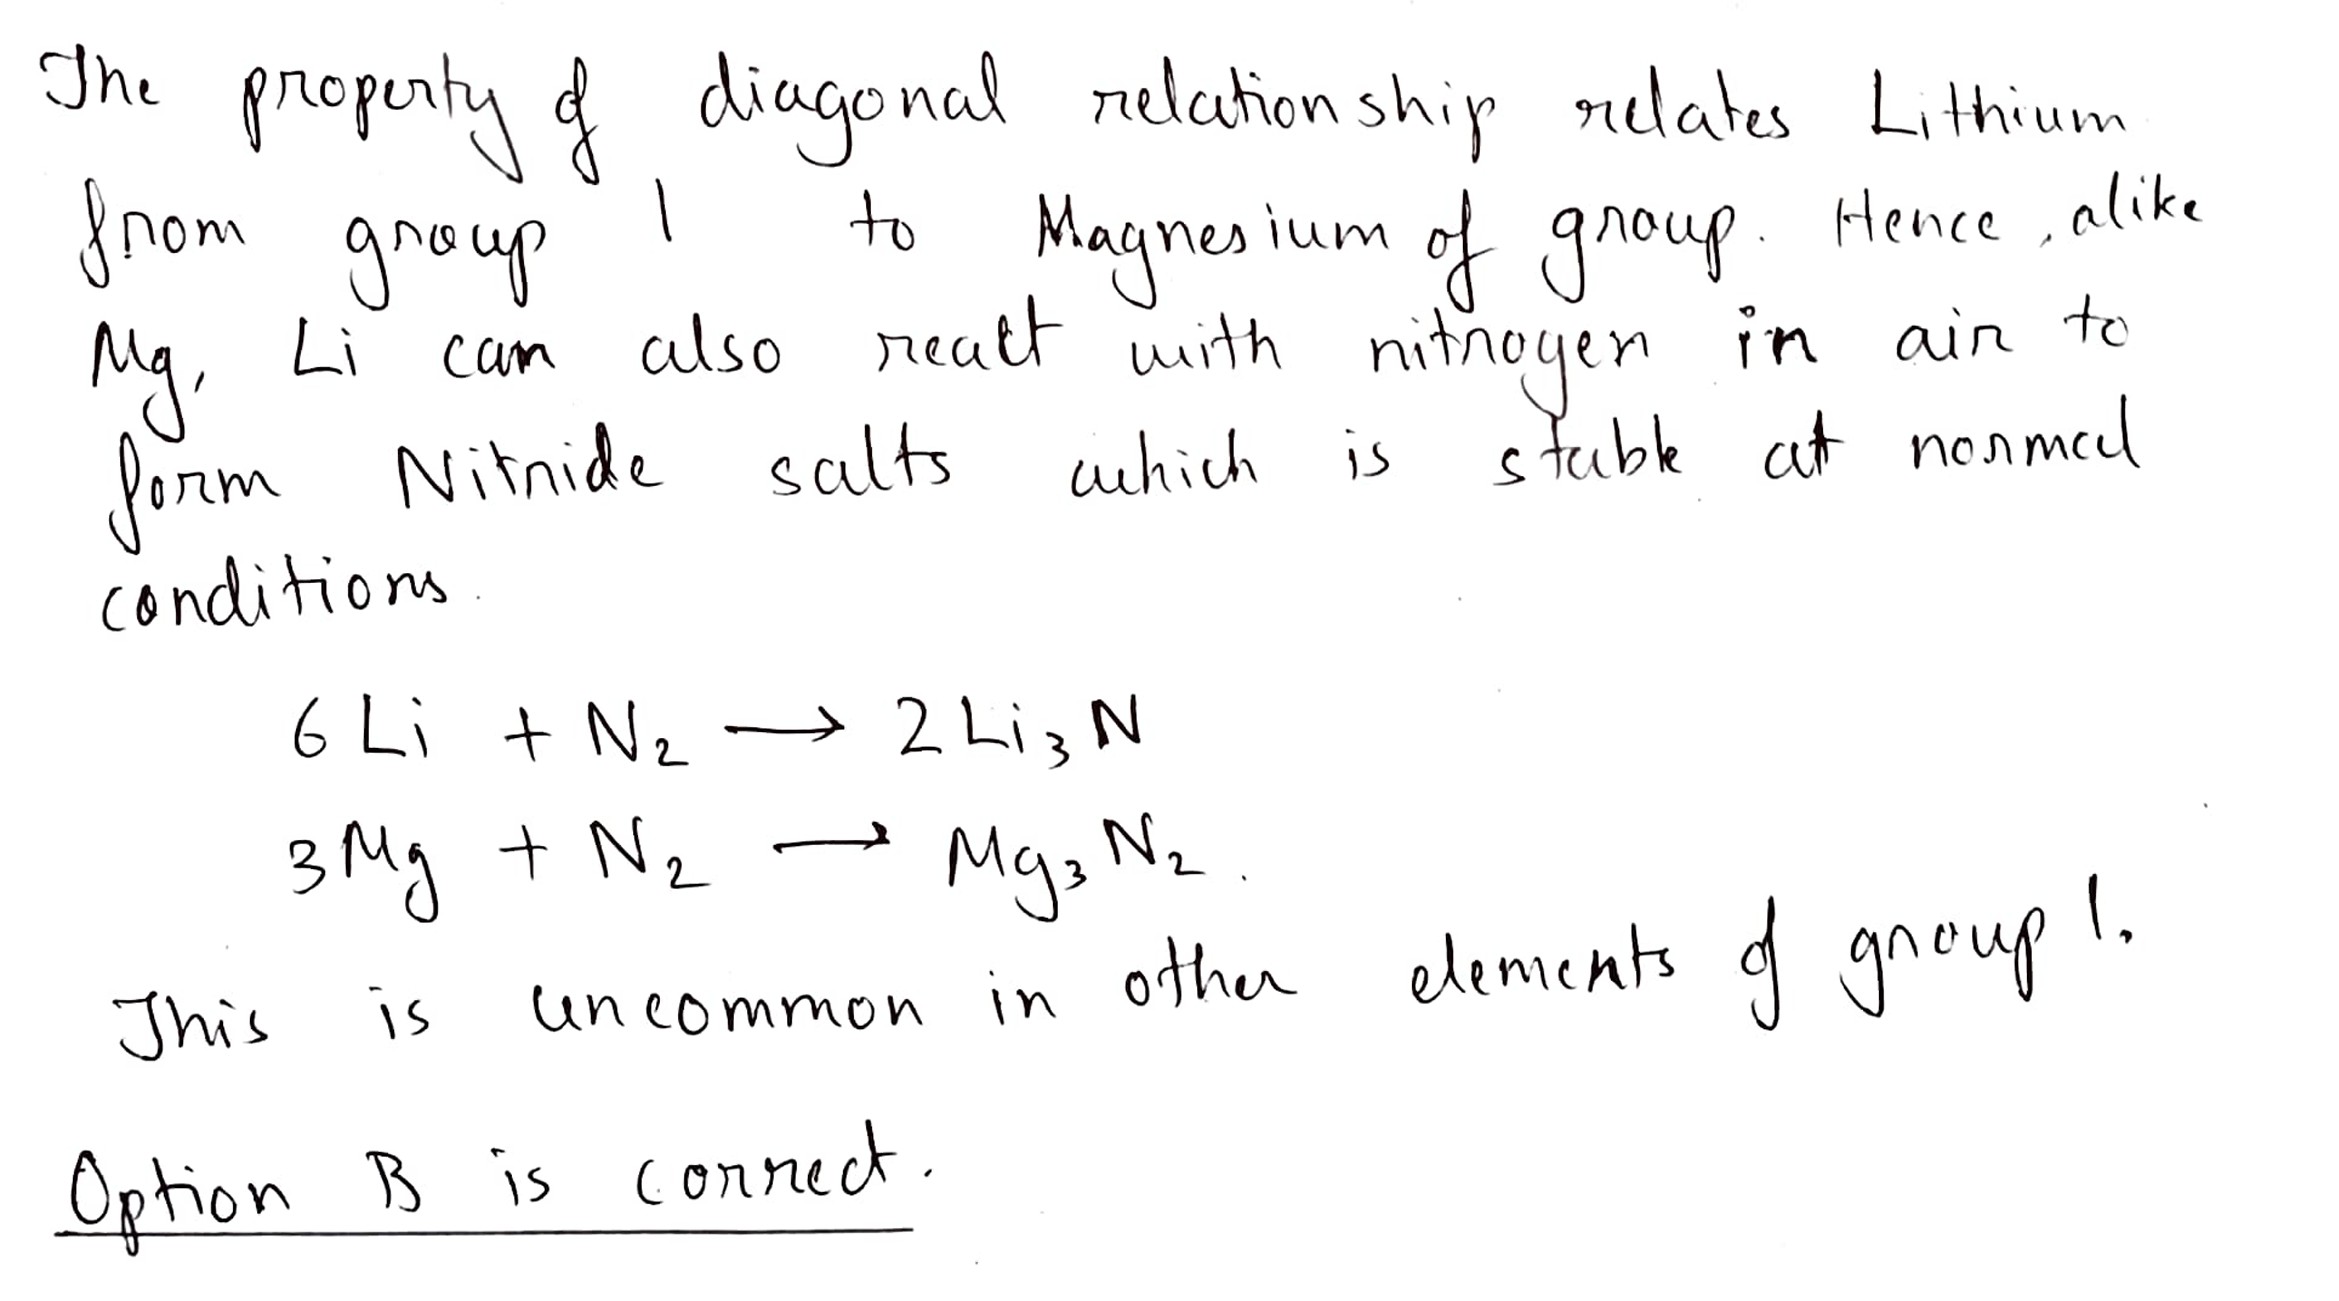 The property of diagonal relationship relates Lithium
from group 1 to Magnesium of group. Hence, alike
Mg, Li can also react with nitrogen in air to
form Nitride salts which is stable at normal
conditions.
6 Li + N₂ → 2 Li₃ N
3 Mg + N₂ → Mg₃ N₂.
This is uncommon in other elements of group 1.
Option B is correct.